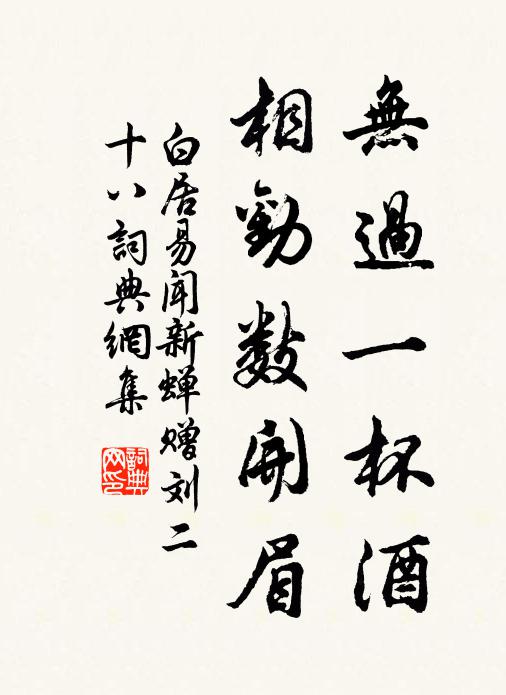 無過一杯酒
相勸數開眉
白居易闻新蝉赠刘二
十八詞典網集
詞典
网印